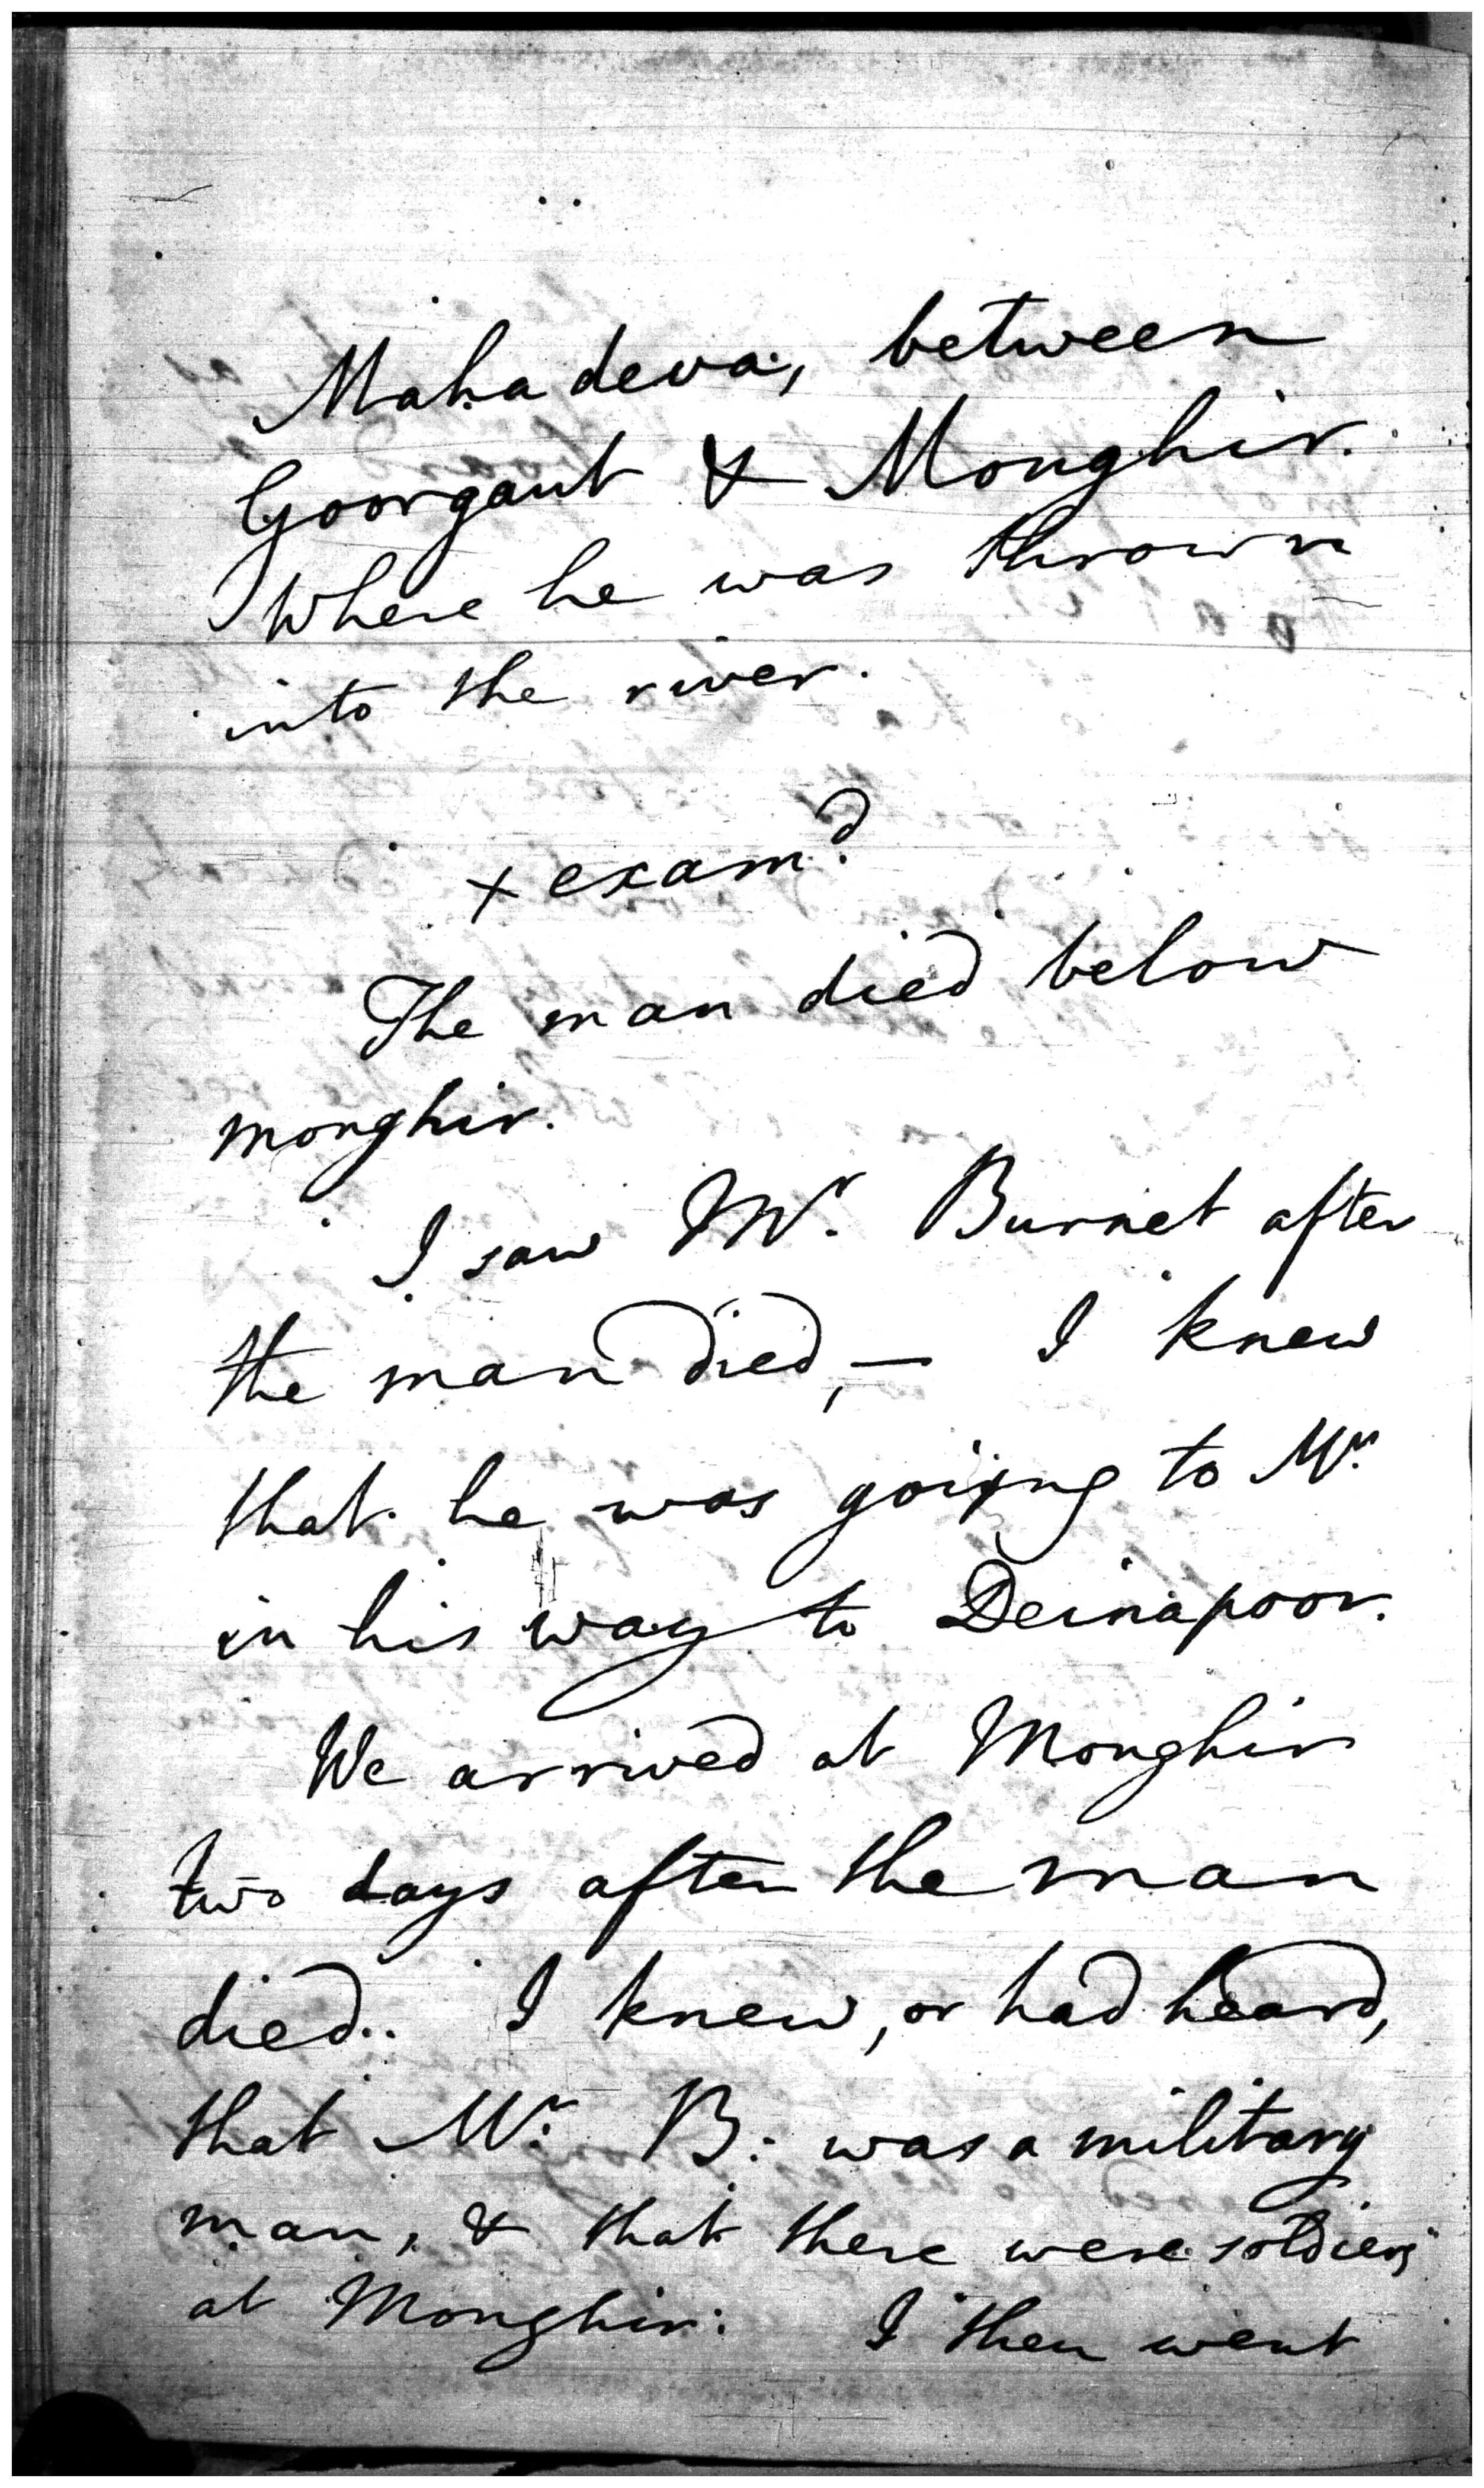 Mahadeva, between
Goorgaut & Monghir.
Where he was thrown
into the river.
x exam.d
The man died below
monghir.
I saw Mr. Burnet after
the man died, — I knew
that he was going to Mr.
in his way to Deinapoor.
We arrived at Monghir
two days after the man
died. I knew, or had heard,
that Mr. B. was a military
man, & that there were soldiers
at Monghir. I then went